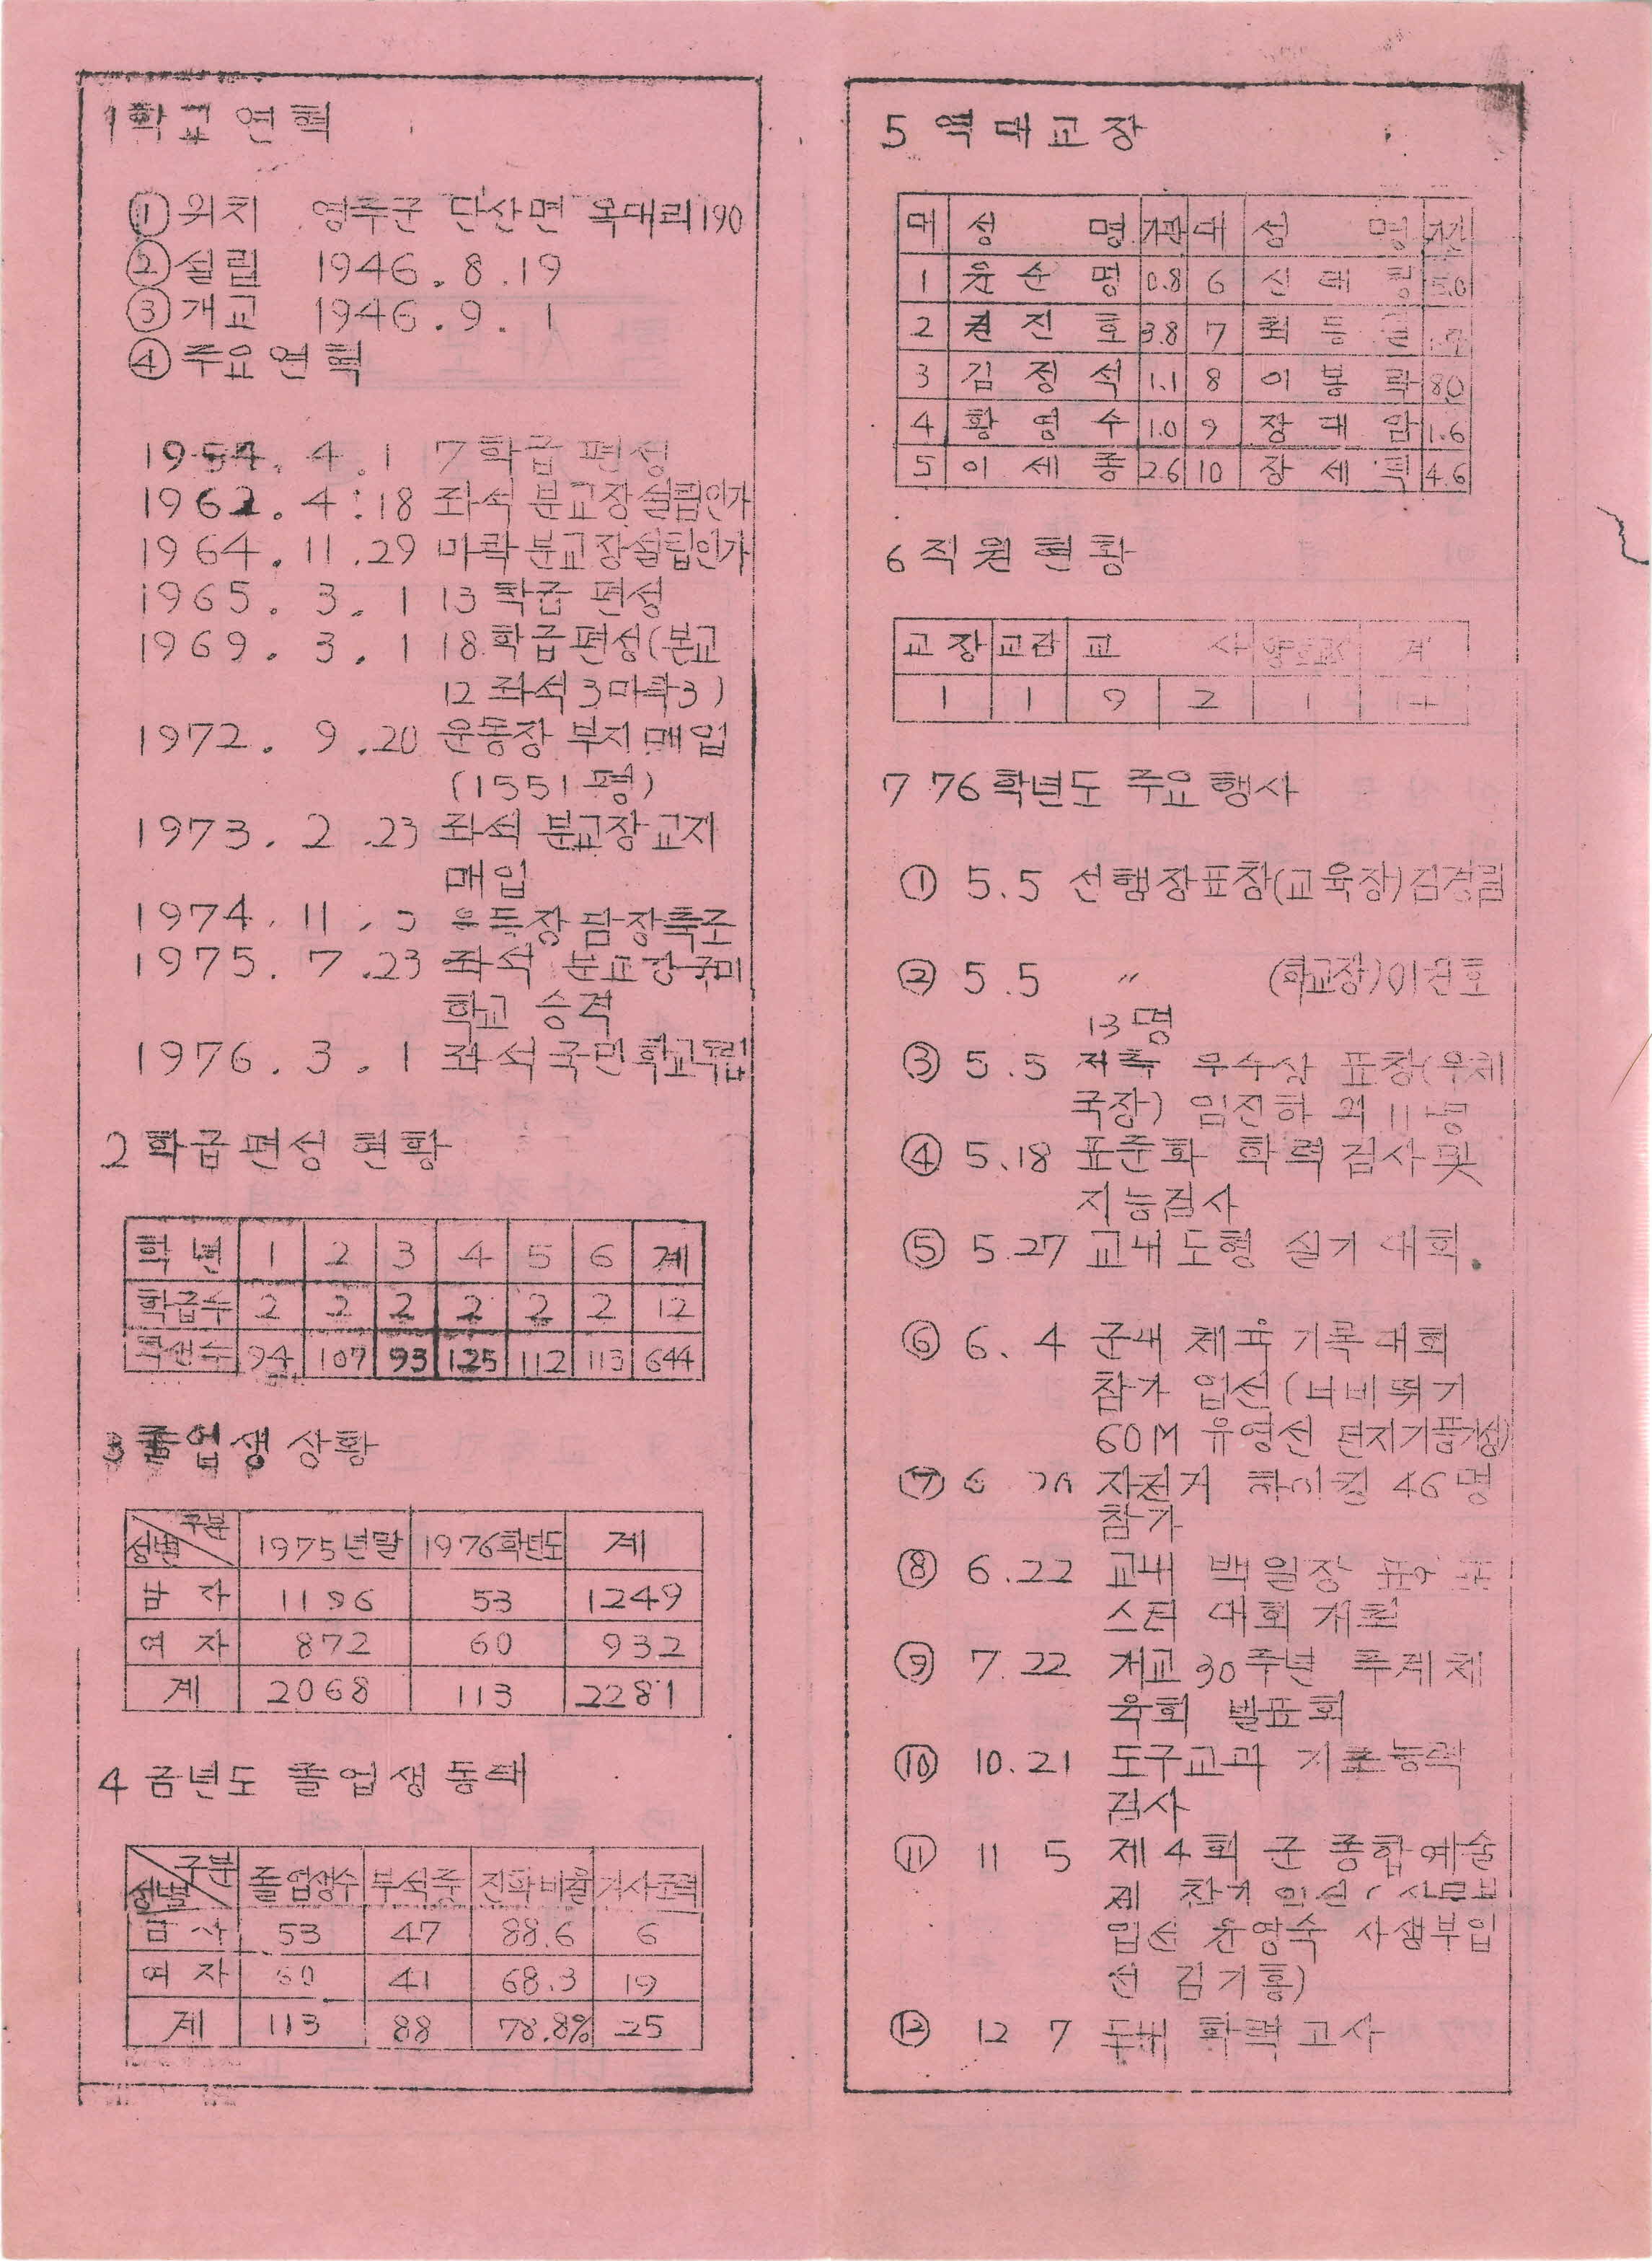 1 학교 연혁
① 위치 영주군 단산면 옥대리 190
② 설립 1946. 8. 19
③ 개교 1946. 9. 1
④ 주요연혁
1954. 4. 1 7학급 편성
1962. 4. 18 좌석 분교장 설립인가
1964. 11. 29 마락 분교장 설립인가
1965. 3. 1 13 학급 편성
1969. 3. 1 18 학급편성 (본교
12 좌석 3 마락 3)
1972. 9. 20 운동장 부지 매입
(1551 평)
1973. 2. 23 좌석 분교장 교지
매입
1974. 11. 운동장 담장축조
1975. 7. 23 좌석 분교장 국민
학교 승격
1976. 3. 1 좌석 국민학교독립
2 학급편성 현황
학년 1 2 3 4 5 6 계
학급수 2 2 2 2 2 2 12
학생수 94 107 93 125 112 113 644
3 졸업생 상황
구분
성별 1975년말 1976학년도 계
남자 1196 53 1249
여자 872 60 932
계 2068 113 2281
4 금년도 졸업생 동태
구분
성별 졸업생수 부석중 진학비율 가사조력
남자 53 47 88.6 6
여자 60 41 68.3 19
계 113 88 78.8% 25
5 역대교장
대 성 명 기간 대 성 명 기간
1 윤순명 0.8 6 신태
2 권진호 3.8 7 최
3 김정석 1.1 8 이봉락 80
4 황영수 1.0 9 장대암 1.6
5 이세종 2.6 10 장세혁 4.6
6 직원현황
교장 교감 교 사 계
1 1 9 2 1 14
7 76학년도 주요행사
① 5.5 선행장표창(교육장)김경림
② 5.5 〃 (학교장)이원호
13명
③ 5.5 저축 우수상 표창(우체
국장) 임진하 외 11명
④ 5.18 표준화 학력검사 및
지능검사
⑤ 5.27 교내 도형 실기 대회.
⑥ 6. 4 군내 체육 기록대회
참가 입선 (너비뛰기
60M 유영선 던지기
⑦ 6 20 자전거 하이킹 46명
참가
⑧ 6.22 교내 백일장 표어 포
스터 대회 개최
⑨ 7.22 개교 30주년 추계체
육회 발표회
⑩ 10.21 도구교과 기초능력
검사
⑪ 11 5 제4회 군 종합예술
제 참가 입선 (
입선 윤영숙 사생부입
선 김기홍)
⑫ 12 7 학력고사